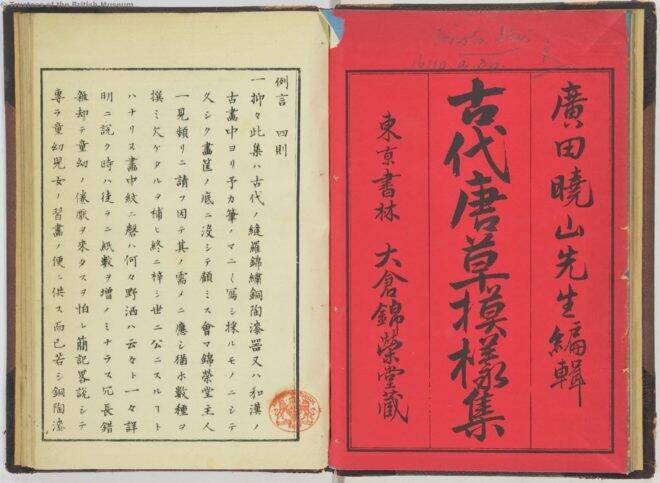 © Trustees of the British Museum
廣田曉山先生編輯
古代唐草摸樣集
東亰書林 大倉錦榮堂藏
例言 四則
一抑々此集ハ古代ノ縫羅錦繡銅陶漆器又ハ和漢ノ
古畫中ヨリ予カ筆ノマニ〱寫シ採ルモノニシテ
久シク畫筐ノ底ニ沒シテ顧ミス會マ錦榮堂主人
一見頻リニ請フ因テ其ノ需メニ應シ猶ホ數種ヲ
撰ミ欠ケタルヲ補ヒ終ニ梓シ世ニ公ニスルヿト
ハナリヌ畫中紋ニ磬ハ何々野洒ハ云々ト一々詳
明ニ說ク時ハ徒ラニ紙數ヲ增ノミナラス冗長錯
雜却テ童幼ノ倦厭ヲ來タスヲ怕レ簡記畧說シテ
專ラ童幼兒女ノ習畫ノ便ニ供ス而已若シ銅陶漆